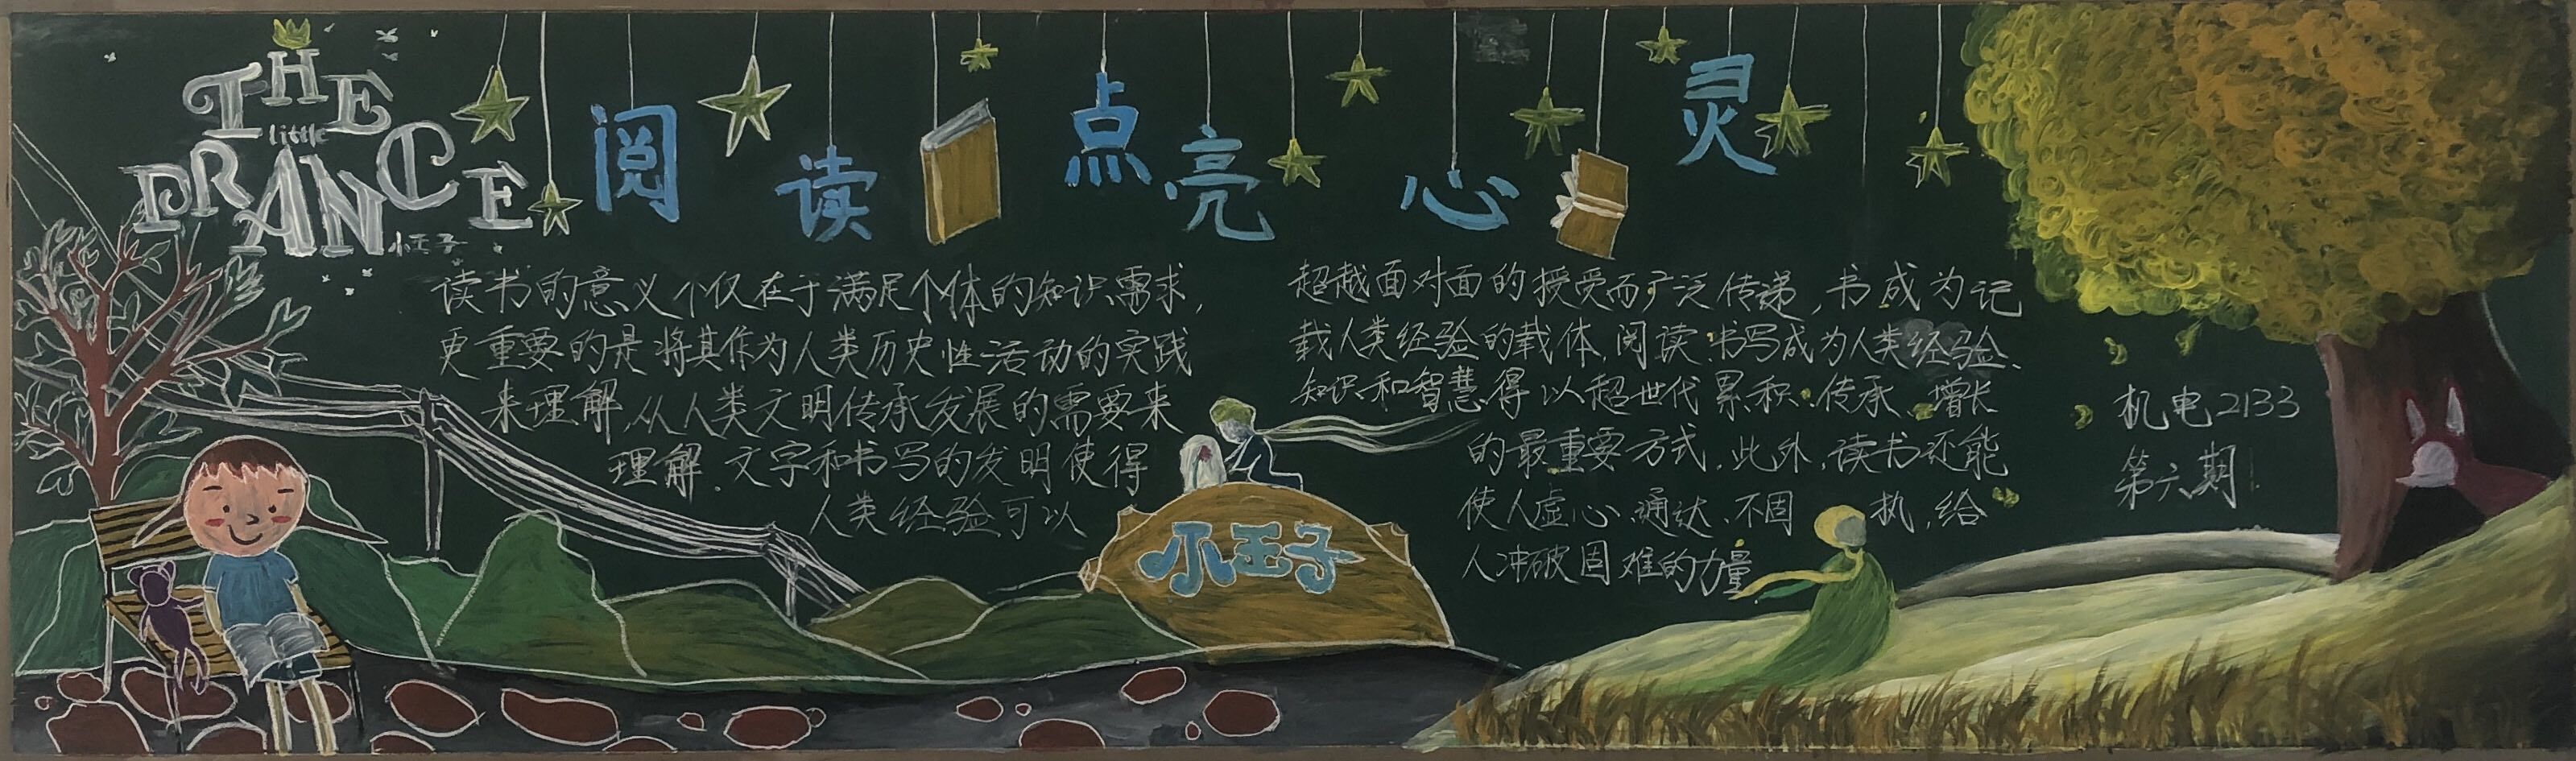 THE
little
PRANCE
小王子
阅读点亮心灵
读书的意义不仅在于满足个体的知识需求,
更重要的是将其作为人类历史性活动的实践
来理解,从人类文明传承发展的需要来
理解.文字和书写的发明使得
人类经验可以
超越面对面的授受而广泛传递,书成为记
载人类经验的载体,阅读、书写成为人类经验、
知识和智慧得以超世代累积、传承、增长
的最重要方式.此外,读书还能
使人虚心、通达、不固执,给
人冲破困难的力量
小王子
机电2133
第六期